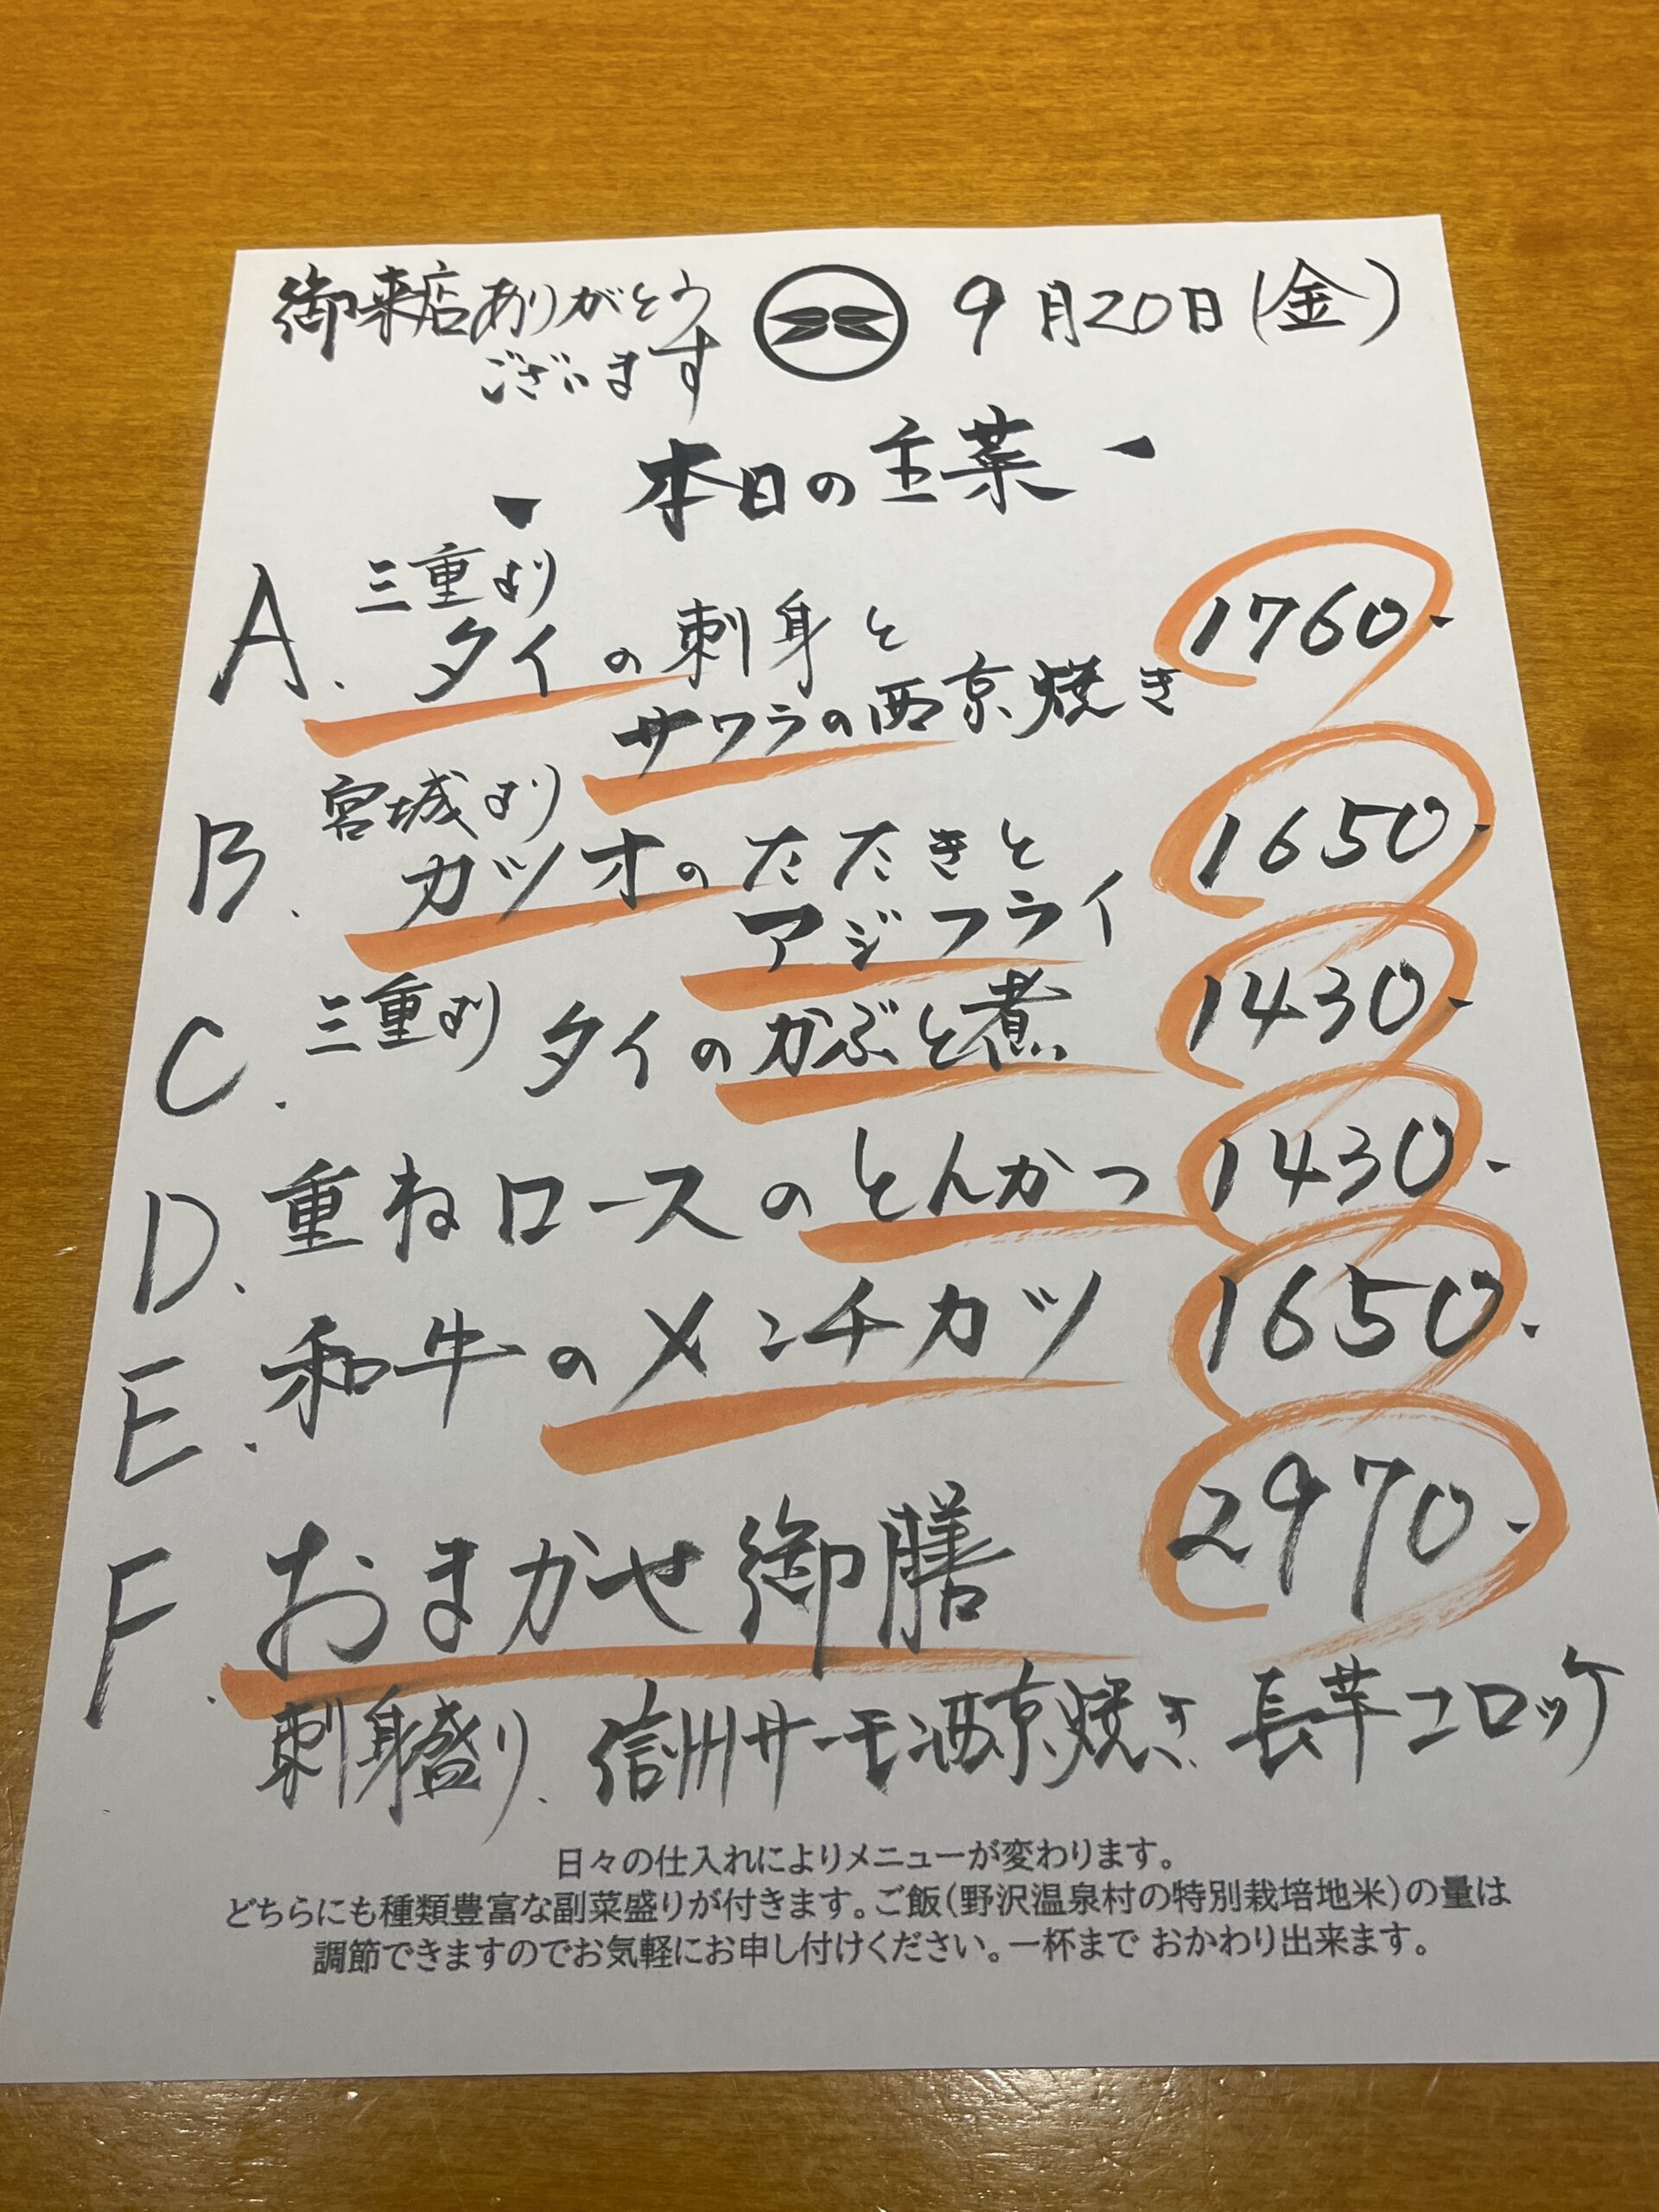 御来店ありがとう
ございます
9月20日(金)
本日の主菜
A. 三重より
タイの刺身と
サワラの西京焼き
1760.
B. 宮城より
カツオのたたきと
アジフライ
1650.
C. 三重より タイのかぶと煮 1430.
D. 重ねロースのとんかつ 1430.
E. 和牛のメンチカツ 1650.
F. おまかせ御膳 2970.
刺身盛り、信州サーモン西京焼き、長芋コロッケ
日々の仕入れによりメニューが変わります。
どちらにも種類豊富な副菜盛りが付きます。ご飯(野沢温泉村の特別栽培地米)の量は
調節できますのでお気軽にお申し付けください。一杯まで おかわり出来ます。